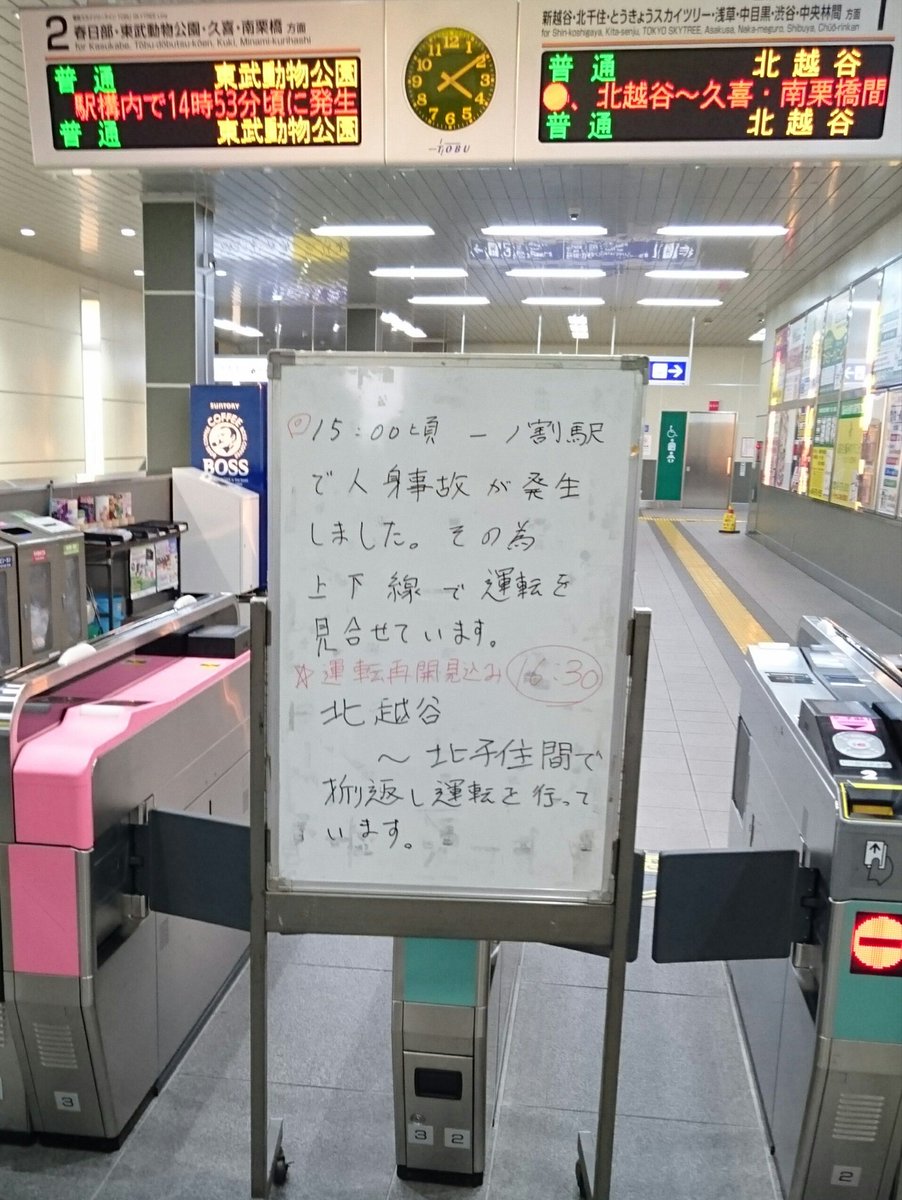 2 春日部・東武動物公園・久喜・南栗橋 方面
for Kasukabe, Tōbu-dōbutsu-kōen, Kuki, Minami-kurihashi
普通 東武動物公園
駅構内で14時53分頃に発生
普通 東武動物公園
TOBU
新越谷・北千住・とうきょうスカイツリー・浅草・中目黒・渋谷・中央林間 方面
for Shin-koshigaya, Kita-senju, TOKYO SKYTREE, Asakusa, Naka-meguro, Shibuya, Chūō-rinkan
普通 北越谷
、北越谷〜久喜・南栗橋間
普通 北越谷
SUNTORY
COFFEE
BOSS
15:00頃 一ノ割駅
で人身事故が発生
しました。その為
上下線で運転を
見合せています。
☆運転再開見込み 16:30
北越谷
〜北千住間で
折り返し運転を行って
います。
3
3 2
2
2